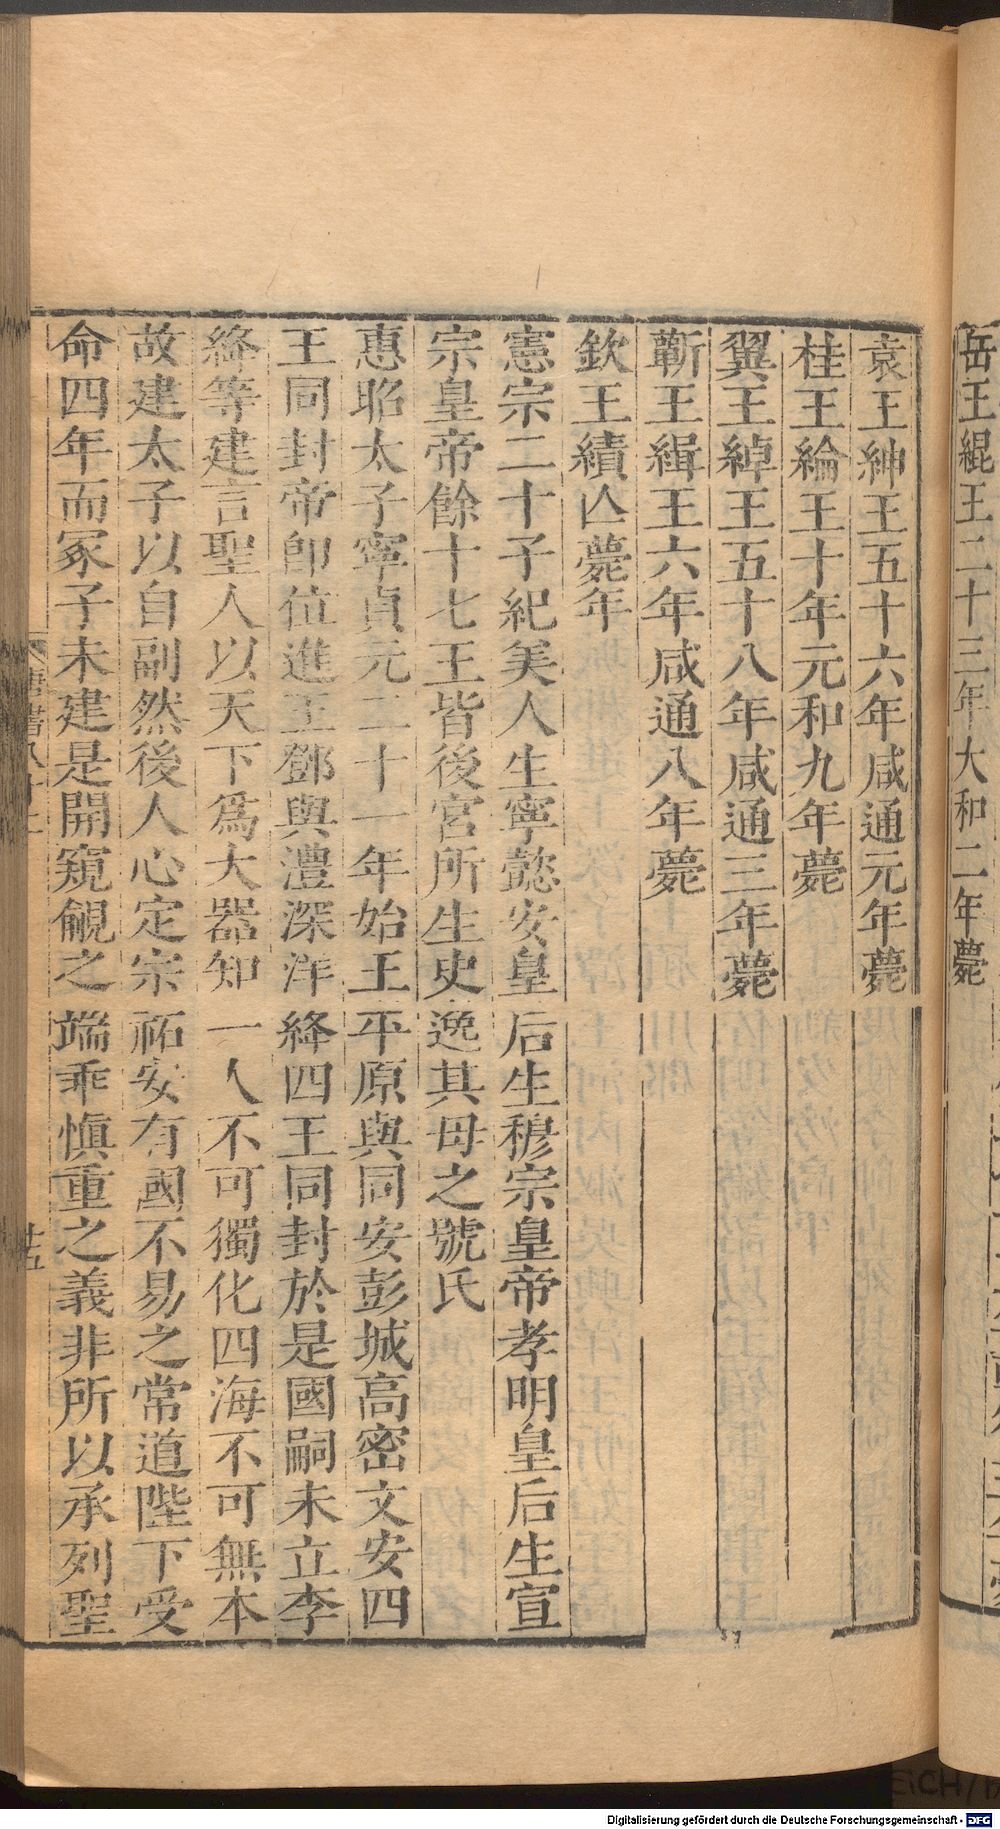 岳王緄王二十三年大和二年薨
袁王紳王五十六年咸通元年薨
桂王綸王十年元和九年薨
翼王綽王五十八年咸通三年薨
蘄王緝王六年咸通八年薨
欽王績亾薨年
憲宗二十子紀美人生寧懿安皇后生穆宗皇帝孝明皇后生宣
宗皇帝餘十七王皆後宮所生史逸其母之號氏
惠昭太子寧貞元二十一年始王平原與同安彭城高密文安四
王同封帝卽位進王鄧與澧深洋絳四王同封於是國嗣未立李
絳等建言聖人以天下爲大器知一人不可獨化四海不可無本
故建太子以自副然後人心定宗祏安有國不易之常道陛下受
命四年而冢子未建是開窺覦之端乖愼重之義非所以承列聖
唐書八十二
廿五
Digitalisierung gefördert durch die Deutsche Forschungsgemeinschaft - DFG